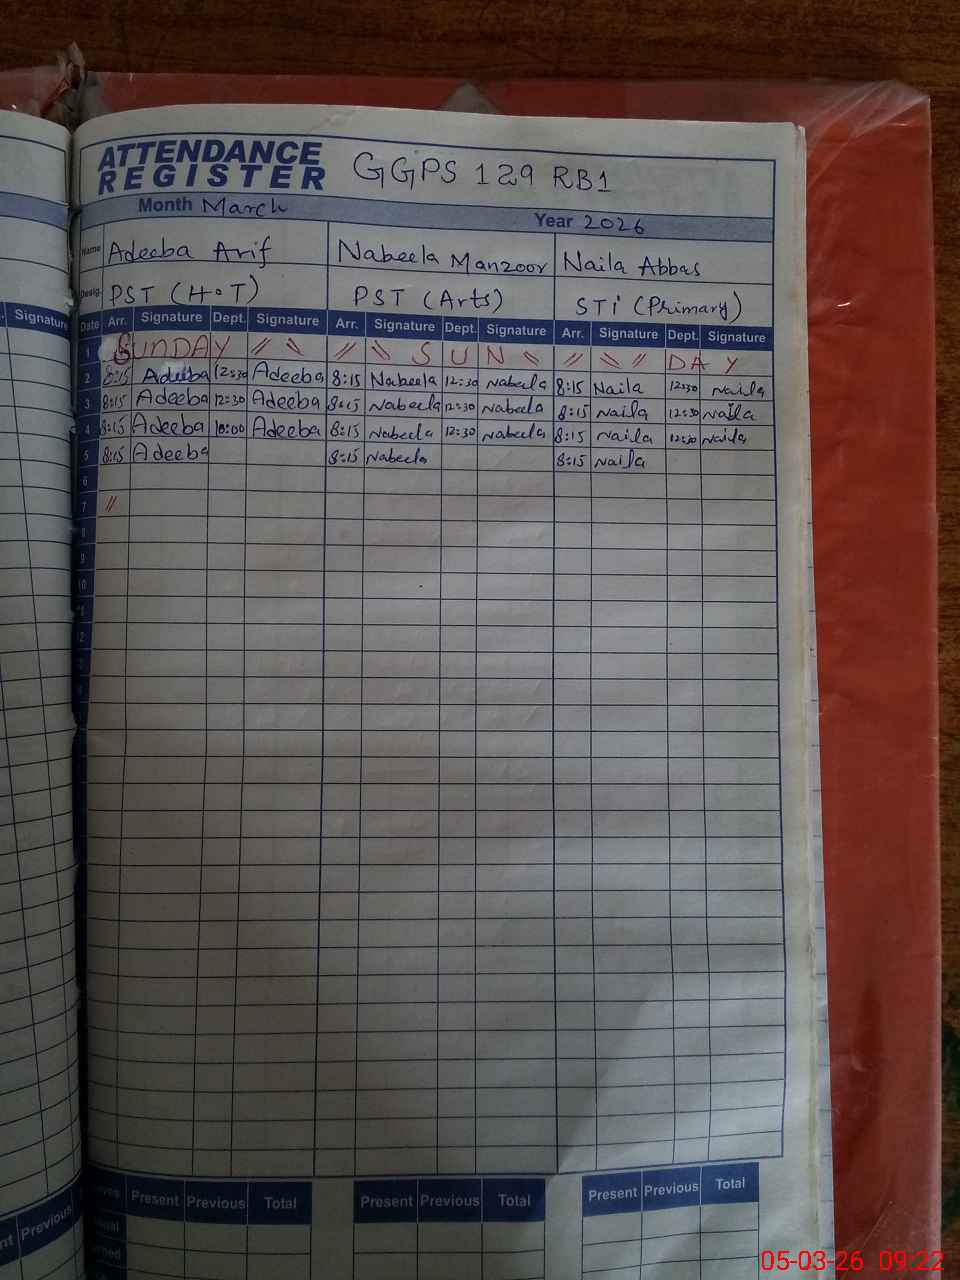 ATTENDANCE REGISTER GGPS 129 RB1
Month March Year 2026
Name Adeeba Arif Nabeela Manzoor Naila Abbas
Desig. PST (H.T) PST (Arts) STI (Primary)
Signature Date Arr. Signature Dept. Signature Arr. Signature Dept. Signature Arr. Signature Dept. Signature
1 SUNDAY // \\ // \\ S U N \\ // \\ // D A Y
2 8:15 Adeeba 12:30 Adeeba 8:15 Nabeela 12:30 Nabeela 8:15 Naila 12:30 Naila
3 8:15 Adeeba 12:30 Adeeba 8:15 Nabeela 12:30 Nabeela 8:15 Naila 12:30 Naila
4 8:15 Adeeba 10:00 Adeeba 8:15 Nabeela 12:30 Nabeela 8:15 Naila 12:30 Naila
5 8:15 Adeeba 8:15 Nabeela 8:15 Naila
6
7 //
8
9
10
Present Previous Total Present Previous Total Present Previous Total
Previous
05-03-26 09:22